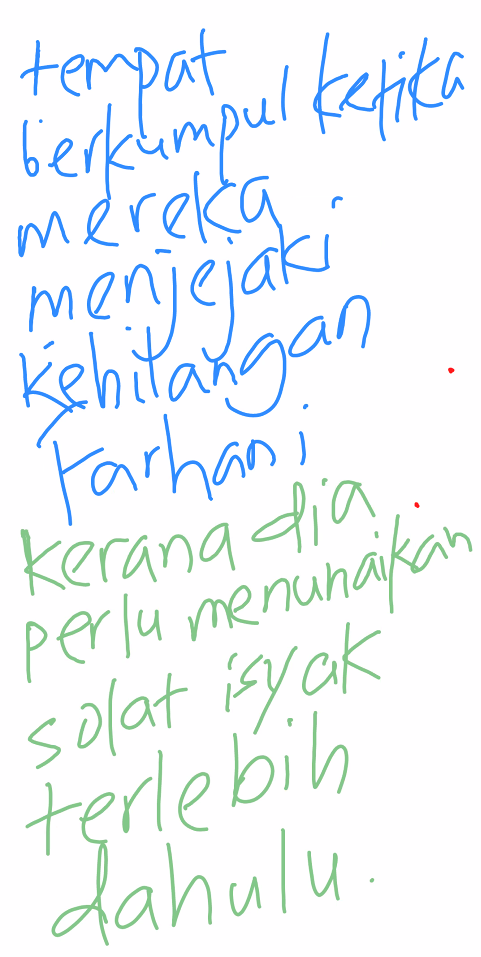 tempat
berkumpul ketika
mereka
menjejaki
kehilangan
Farhani
kerana dia
perlu menunaikan
solat isyak
terlebih
dahulu.